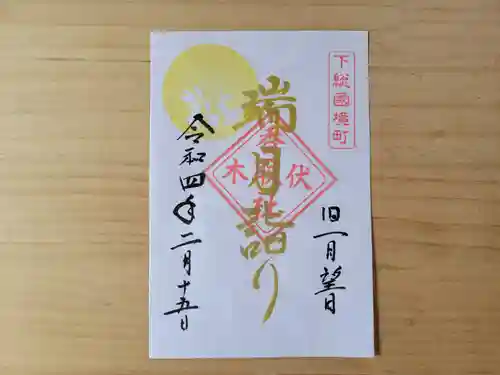 下総國境町
旧一月望日
瑞月詣り
香取神社
伏木
令和四年二月十五日